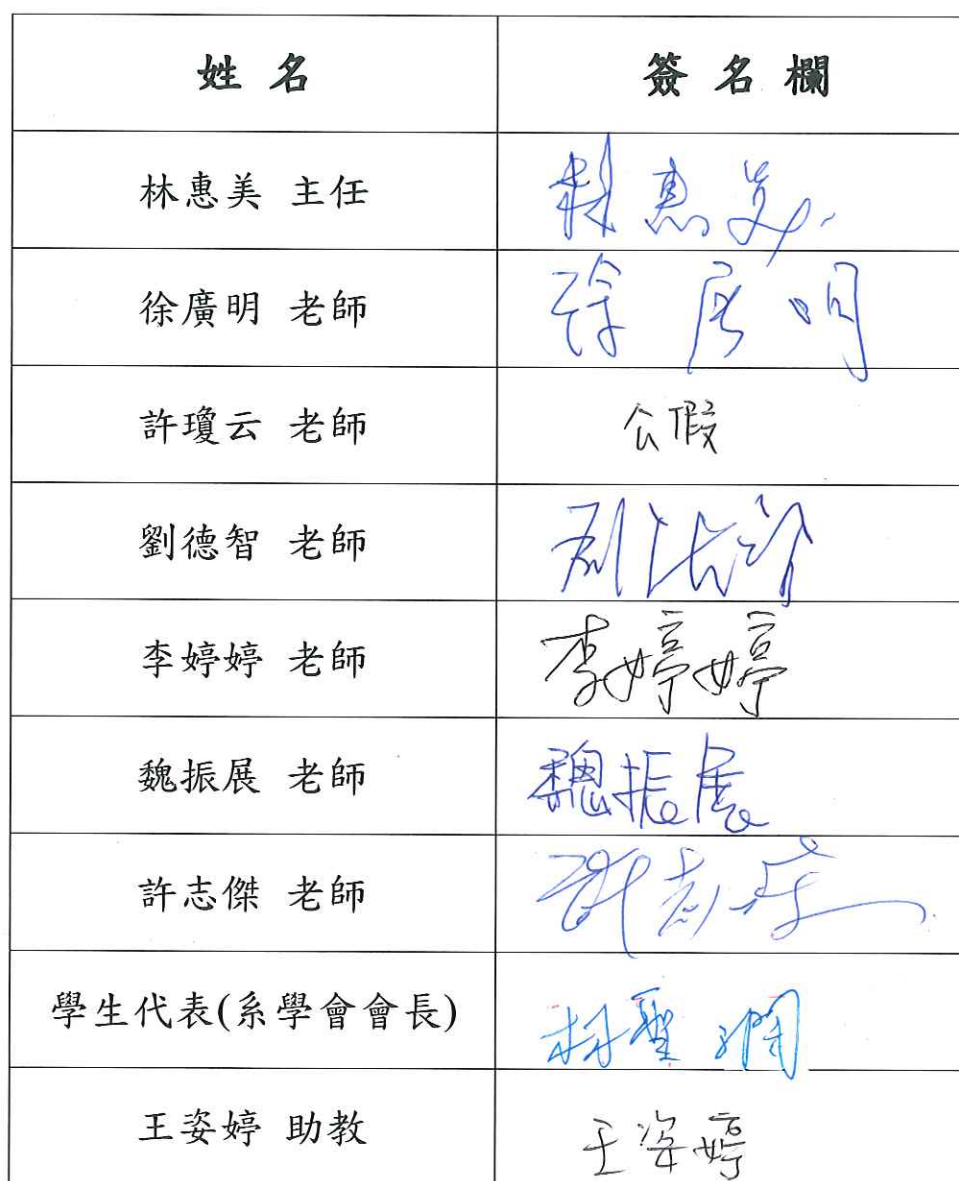 姓名 簽名欄
林惠美 主任 林惠美
徐廣明 老師 徐廣明
許瓊云 老師 公假
劉德智 老師 劉德智
李婷婷 老師 李婷婷
魏振展 老師 魏振展
許志傑 老師 許志傑
學生代表(系學會會長) 林聖
王姿婷 助教 王姿婷